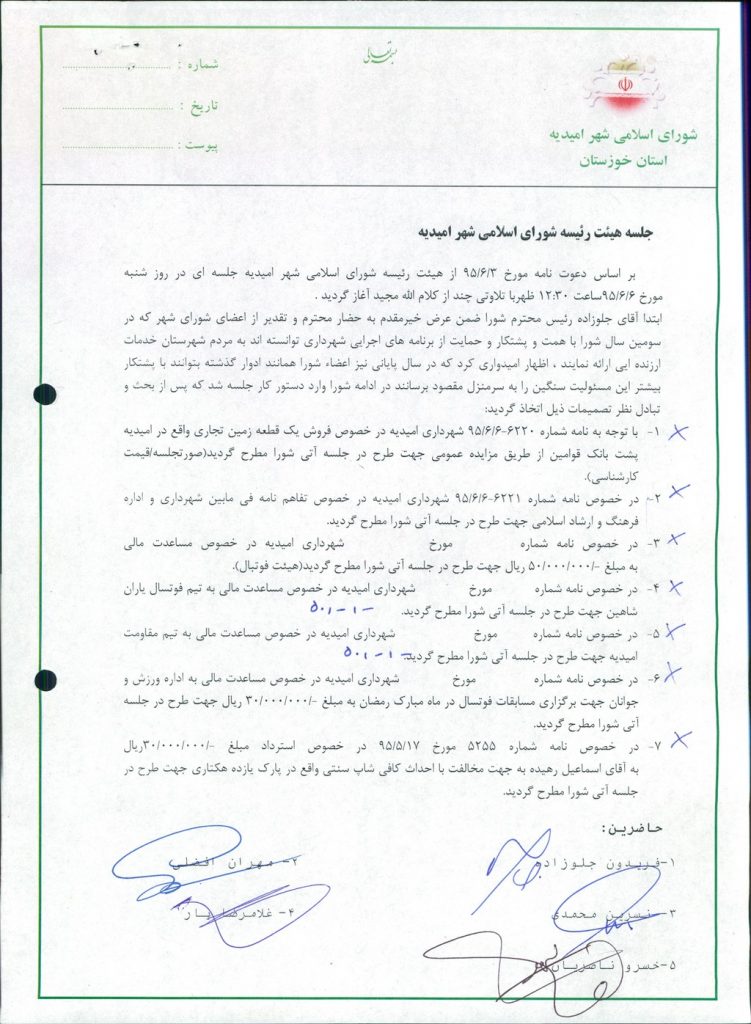 بسمه تعالی
شماره :
تاریخ :
پیوست :
شورای اسلامی شهر امیدیه
استان خوزستان
جلسه هیئت رئیسه شورای اسلامی شهر امیدیه
بر اساس دعوت نامه مورخ ۹۵/۶/۳ از هیئت رئیسه شورای اسلامی شهر امیدیه جلسه ای در روز شنبه
مورخ ۹۵/۶/۶ساعت ۱۲:۳۰ ظهربا تلاوتی چند از کلام الله مجید آغاز گردید .
ابتدا آقای جلوزاده رئیس محترم شورا ضمن عرض خیرمقدم به حضار محترم و تقدیر از اعضای شورای شهر که در
سومین سال شورا با همت و پشتکار و حمایت از برنامه های اجرایی شهرداری توانسته اند به مردم شهرستان خدمات
ارزنده ایی ارائه نمایند ، اظهار امیدواری کرد که در سال پایانی نیز اعضاء شورا همانند ادوار گذشته بتوانند با پشتکار
بیشتر این مسئولیت سنگین را به سرمنزل مقصود برسانند در ادامه شورا وارد دستور کار جلسه شد که پس از بحث و
تبادل نظر تصمیمات ذیل اتخاذ گردید:
۱- با توجه به نامه شماره ۶۲۲۰-۹۵/۶/۶ شهرداری امیدیه در خصوص فروش یک قطعه زمین تجاری واقع در امیدیه
پشت بانک قوامین از طریق مزایده عمومی جهت طرح در جلسه آتی شورا مطرح گردید(صورتجلسه/قیمت
کارشناسی).
۲- در خصوص نامه شماره ۶۲۲۱-۹۵/۶/۶ شهرداری امیدیه در خصوص تفاهم نامه فی مابین شهرداری و اداره
فرهنگ و ارشاد اسلامی جهت طرح در جلسه آتی شورا مطرح گردید.
۳- در خصوص نامه شماره مورخ شهرداری امیدیه در خصوص مساعدت مالی
به مبلغ -/۵۰/۰۰۰/۰۰۰ ریال جهت طرح در جلسه آتی شورا مطرح گردید(هیئت فوتبال).
۴- در خصوص نامه شماره مورخ شهرداری امیدیه در خصوص مساعدت مالی به تیم فوتسال یاران
شاهین جهت طرح در جلسه آتی شورا مطرح گردید.
۵- در خصوص نامه شماره مورخ شهرداری امیدیه در خصوص مساعدت مالی به تیم مقاومت
امیدیه جهت طرح در جلسه آتی شورا مطرح گردید.
۶- در خصوص نامه شماره مورخ شهرداری امیدیه در خصوص مساعدت مالی به اداره ورزش و
جوانان جهت برگزاری مسابقات فوتسال در ماه مبارک رمضان به مبلغ -/۳۰/۰۰۰/۰۰۰ ریال جهت طرح در جلسه
آتی شورا مطرح گردید.
۷- در خصوص نامه شماره ۵۲۵۵ مورخ ۹۵/۵/۱۷ در خصوص استرداد مبلغ -/۳۰/۰۰۰/۰۰۰ریال
به آقای اسماعیل رهیده به جهت مخالفت با احداث کافی شاپ سنتی واقع در پارک یازده هکتاری جهت طرح در
جلسه آتی شورا مطرح گردید.
حاضرین:
۱-فریدون جلوزاده
۲- مهران افضلی
۳- نسرین محمدی
۴- غلامرضا یار
۵-خسرو ناصریان